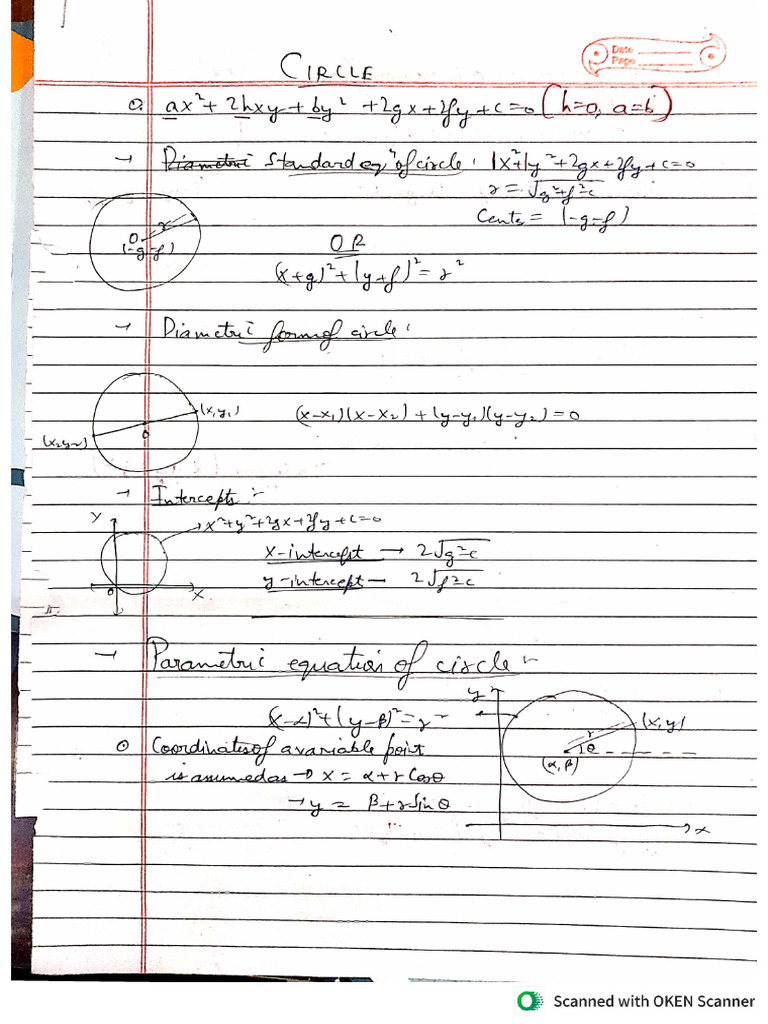 Date
Page
CIRCLE
ax²+2hxy+by²+2gx+2fy+c=0 (h=0, a=b)
→ Diametric Standard eqⁿ of circle: 1x²+1y²+2gx+2fy+c=0
r=√g²+f²-c
Center = (-g-f)
O
r
(-g,-f)
OR
(x+g)²+(y+f)²=r²
→ Diametric form of circle:
(x,y₁)
(x-x₁)(x-x₂)+(y-y₁)(y-y₂)=0
(x₂y₂)
O
→ Intercepts:-
y
→x²+y²+2gx+2fy+c=0
x-intercept → 2√g²-c
y-intercept - 2√f²-c
O
x
→ Parametric equation of circle:-
(x-α)²+(y-β)²=r²
y
(x,y)
r
θ
(α,β)
x
Coordinates of a variable point
is assumed as → x = α+rCosθ
→ y = β+rSinθ
Scanned with OKEN Scanner